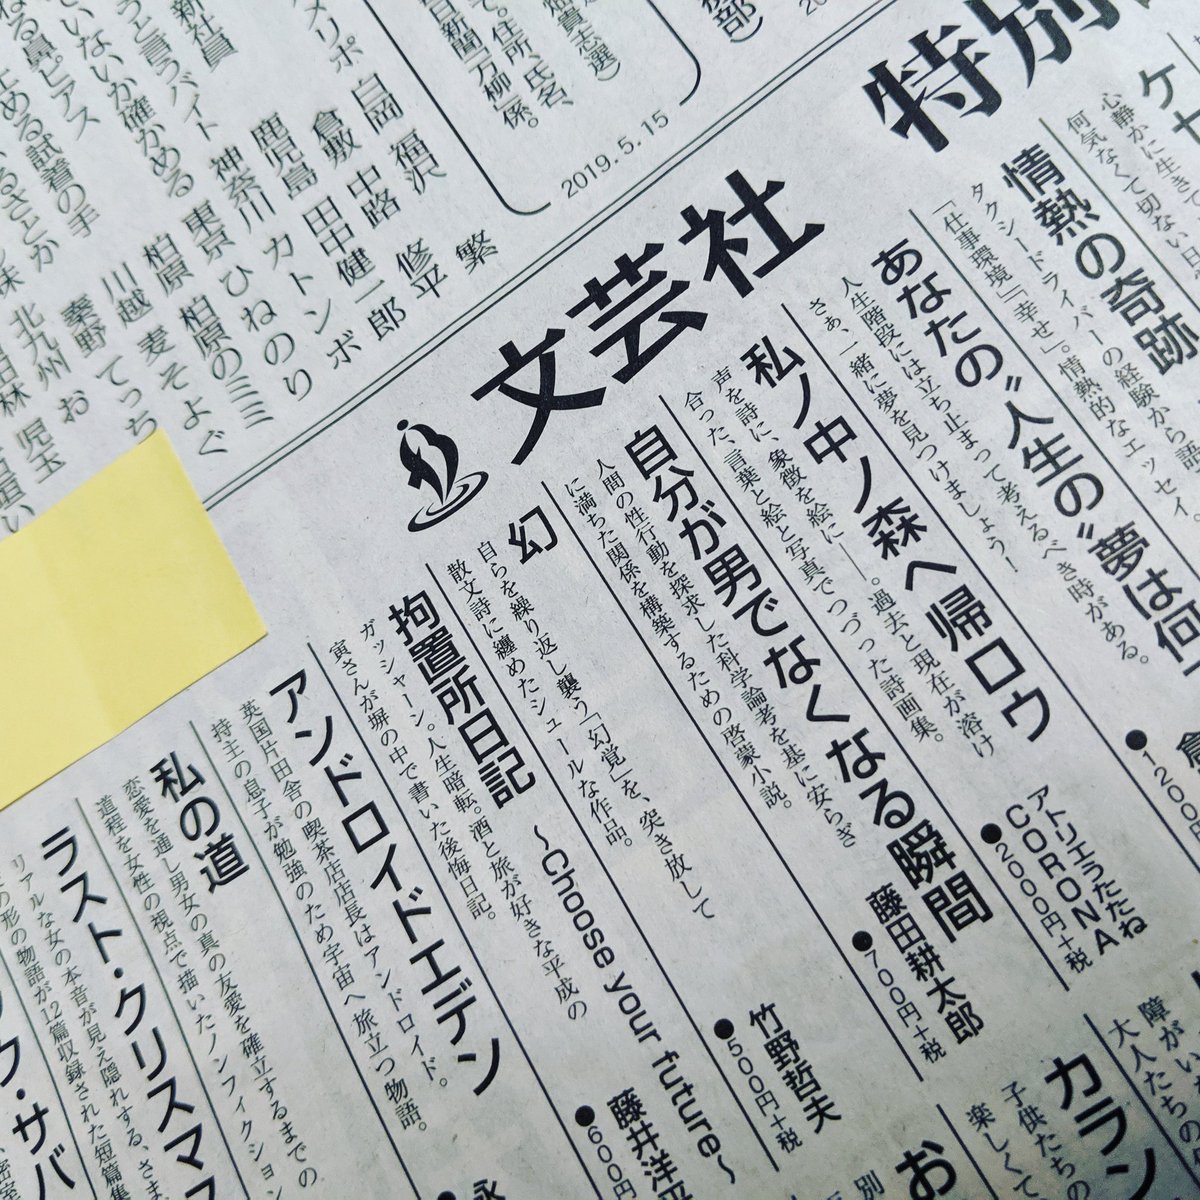 うと言うバイト
いないか確かめる
る鼻ピアス
止める試着の手
白岡 福沢 繁
倉敷 中路 修平
鹿児島 田中健一郎
神奈川 カトンボ
東京 ひねのり
柏原 柏原の三三
川越 麦そよぐ
秦野 てっち
北九州 お
児玉
住所、氏名、
2019.5.15
特別
文芸社
心静かに生きて
何気なくて切ない日
情熱の奇跡
タクシードライバーの経験から語
「仕事環境」「幸せ」。情熱的なエッセイ。
あなたの〝人生の〟夢は何
人生階段には立ち止まって考えるべき時がある。
さぁ、一緒に夢を見つけましょう!
私ノ中ノ森へ帰ロウ
声を詩に、象徴を絵に―。過去と現在が溶け
合った、言葉と絵と写真でつづった詩画集。
アトリエラたたね
CORONA
●2000円+税
自分が男でなくなる瞬間
人間の性行動を探求した科学論考を基に安らぎ
に満ちた関係を構築するための啓蒙小説。
藤田耕太郎
●700円+税
幻
自らを繰り返し襲う「幻覚」を、突き放して
散文詩に纏めたシュールな作品。
竹野哲夫
●500円+税
拘置所日記 ~Choose your future~
ガッシャーン。人生暗転。酒と旅が好きな平成の
寅さんが塀の中で書いた後悔日記。
藤井洋平
●600円
アンドロイドエデン
英国片田舎の喫茶店店長はアンドロイド。
持主の息子が勉強のため宇宙へ旅立つ物語。
私の道
恋愛を通し男女の真の友愛を確立するまでの
道程を女性の視点で描いたノンフィクション
ラスト・クリスマ
リアルな女の本音が見え隠れする、さま
の形の物語が12篇収録された短篇集
●1200円
カラン
子供たちの
楽しくて
障がい
大人たちの
お